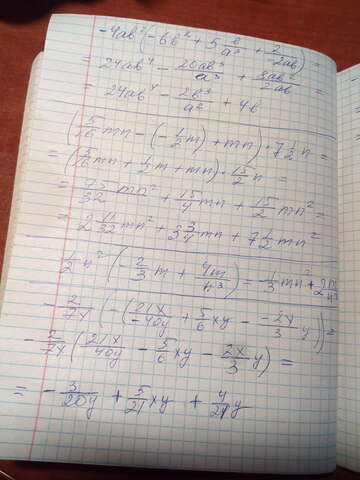 -4ab²(-6b² + 5 b/a³ + 2/2ab) =
= 24ab⁴ - 20ab³/a³ + 8ab²/2ab =
= 24ab⁴ - 20b³/a² + 4b
(5/16 mn - (-1/2 m) + mn) · 7 1/2 n =
= (5/16 mn + 1/2 m + mn) · 15/2 n =
= 75/32 mn² + 15/4 mn + 15/2 mn² =
= 2 11/32 mn² + 3 3/4 mn + 7 1/2 mn²
1/2 n² (-2/3 m + 4m/n³) = -1/3 mn² +
- 2/7x (-(21x/-40y + 5/6 xy - -2x/3 y)) =
- 2/7x (21x/40y - 5/6 xy - 2x/3 y) =
= - 3/20y + 5/21 xy + 4/21 y